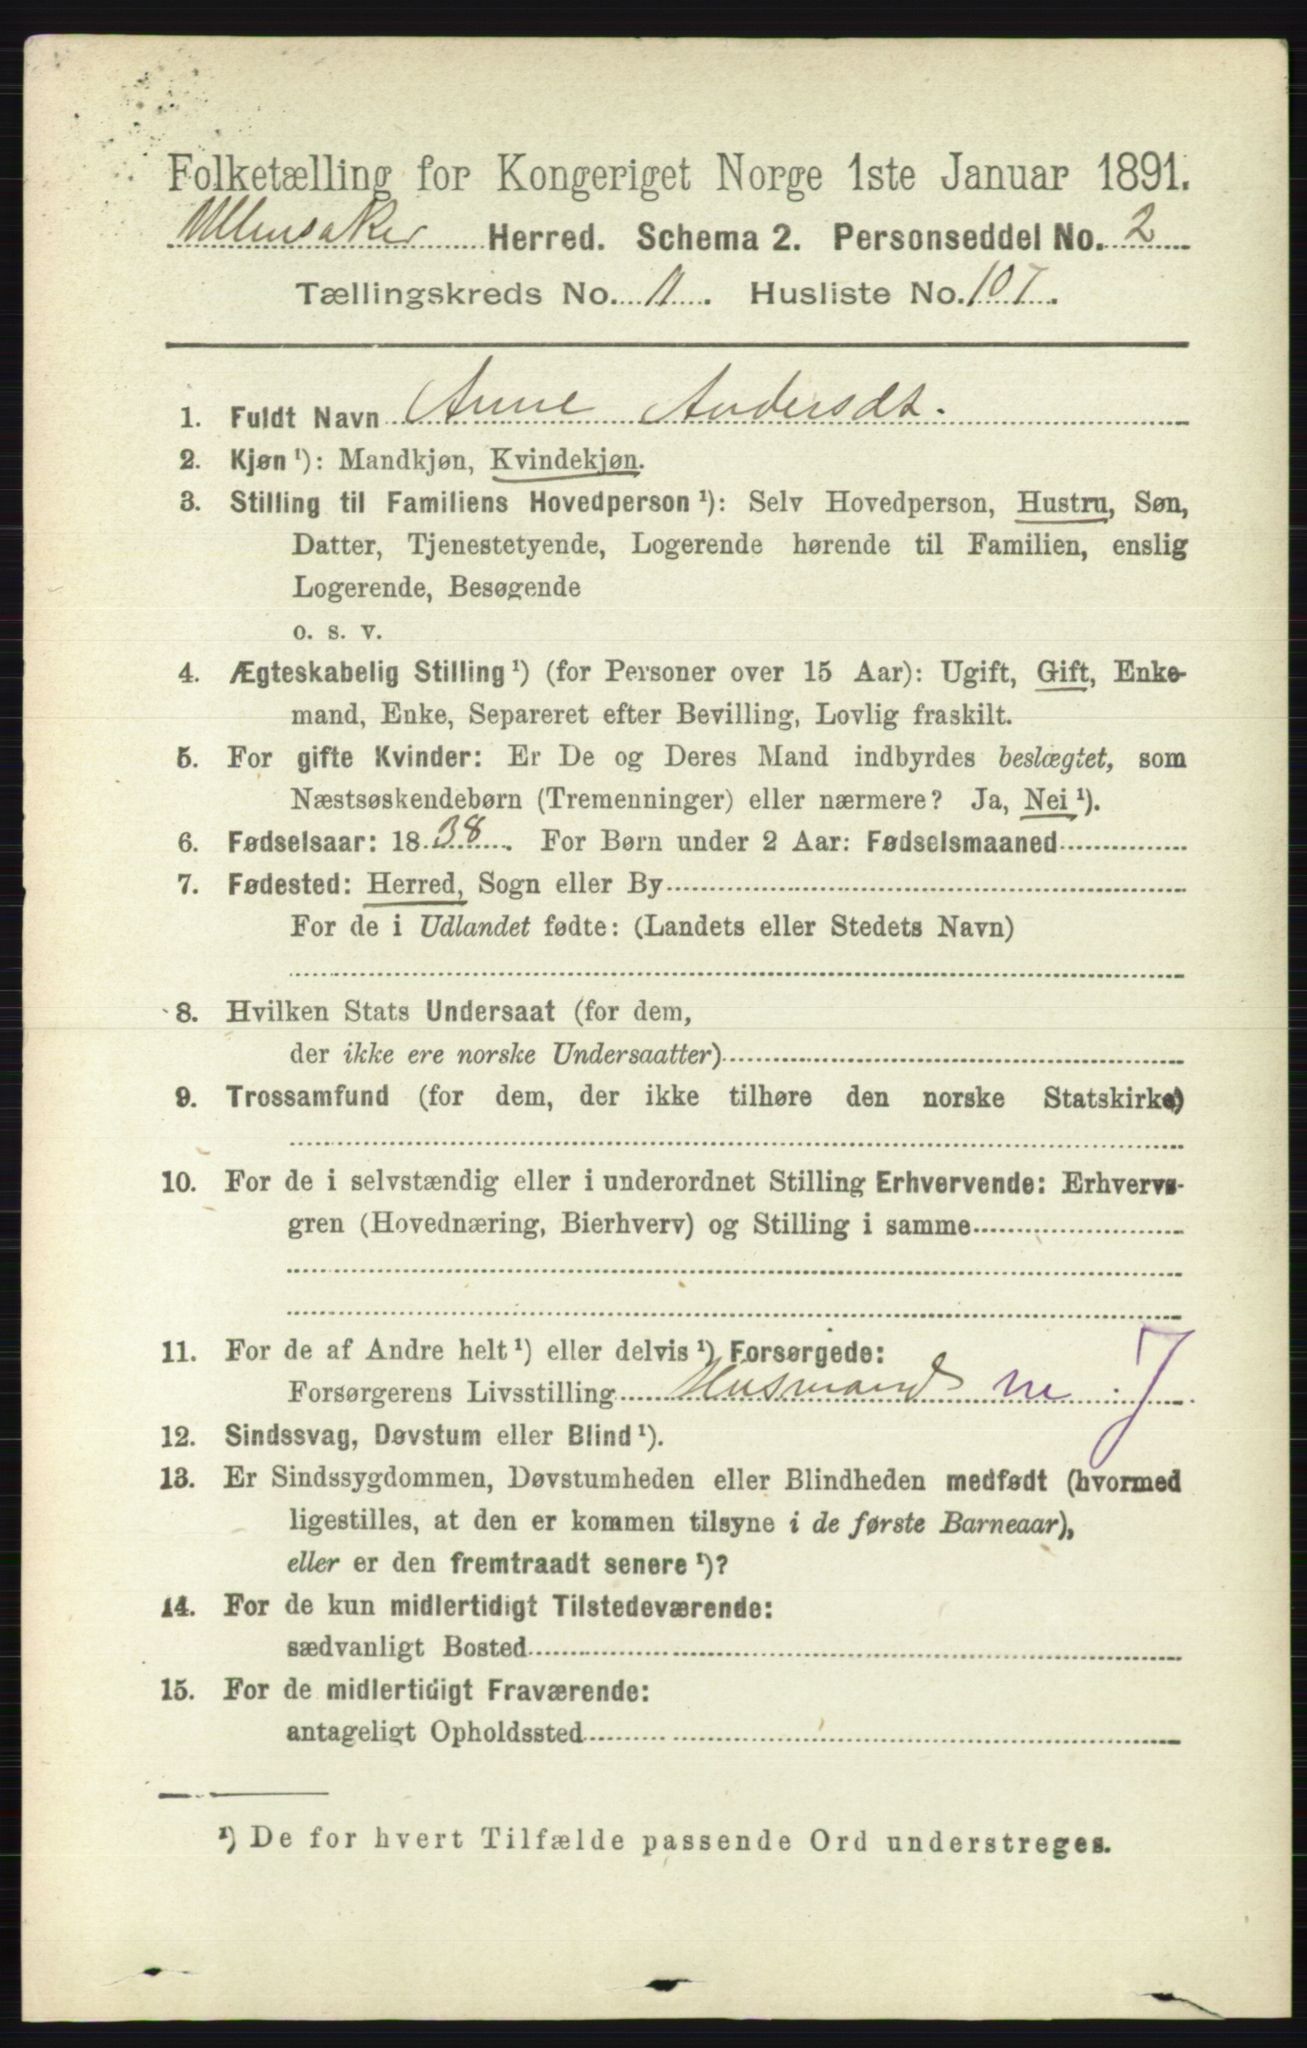 Folketælling for Kongeriget Norge 1ste Januar 1891.
Ullensaker Herred. Schema 2. Personseddel No. 2
Tællingskreds No. 11. Husliste No. 107.
1. Fuldt Navn Anne Andersdt.
2. Kjøn ¹): Mandkjøn, Kvindekjøn.
3. Stilling til Familiens Hovedperson ¹): Selv Hovedperson, Hustru, Søn,
Datter, Tjenestetyende, Logerende hørende til Familien, enslig
Logerende, Besøgende
o. s. v.
4. Ægteskabelig Stilling ¹) (for Personer over 15 Aar): Ugift, Gift, Enke-
mand, Enke, Separeret efter Bevilling, Lovlig fraskilt.
5. For gifte Kvinder: Er De og Deres Mand indbyrdes beslægtet, som
Næstsøskendebørn (Tremenninger) eller nærmere? Ja, Nei ¹).
6. Fødselsaar: 1838. For Børn under 2 Aar: Fødselsmaaned
7. Fødested: Herred, Sogn eller By
For de i Udlandet fødte: (Landets eller Stedets Navn)
8. Hvilken Stats Undersaat (for dem,
der ikke ere norske Undersaatter)
9. Trossamfund (for dem, der ikke tilhøre den norske Statskirke)
10. For de i selvstændig eller i underordnet Stilling Erhvervende: Erhvervs-
gren (Hovednæring, Bierhverv) og Stilling i samme
11. For de af Andre helt ¹) eller delvis ¹) Forsørgede:
Forsørgerens Livsstilling Husmand m J
12. Sindssvag, Døvstum eller Blind ¹).
13. Er Sindssygdommen, Døvstumheden eller Blindheden medfødt (hvormed
ligestilles, at den er kommen tilsyne i de første Barneaar),
eller er den fremtraadt senere ¹)?
14. For de kun midlertidigt Tilstedeværende:
sædvanligt Bosted
15. For de midlertidigt Fraværende:
antageligt Opholdssted
¹) De for hvert Tilfælde passende Ord understreges.